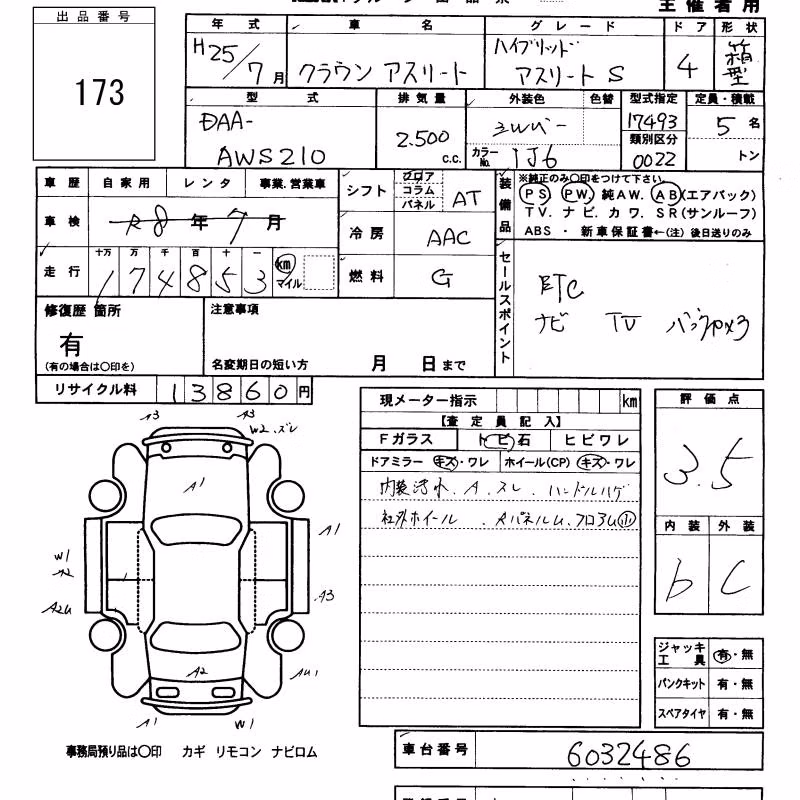 主催者用
出品番号
173
年式 車名 グレード ドア 形状
H25/7月 クラウン アスリート ハイブリッド アスリート S 4 箱型
型式 排気量 外装色 色替 型式指定 定員・積載
DAA-
AWS210
2.500 c.c.
シルバー
カラーNo. 1J6
17493
類別区分
0022
5 名
トン
車歴 自家用 レンタ 事業.営業車
車検 R8年7月
走行 十万 万 千 百 十 一
174853 km マイル
シフト フロア コラム パネル AT
冷房 AAC
燃料 G
装備品
※純正のみ〇印をつけて下さい。
PS PW. 純AW. AB(エアバック)
TV. ナビ. カワ. SR(サンルーフ)
ABS ・ 新車保証書←(注) 後日送りのみ
セールスポイント
ETC
ナビ TV
修復歴 箇所
有
(有の場合は〇印を)
注意事項
名変期日の短い方 月 日まで
リサイクル料 13860円
現メーター指示 km
【査定員記入】
Fガラス トビ石 ヒビワレ
ドアミラー キズ・ワレ ホイール(CP) キズ・ワレ
内装汚れ.A.スレ.ハンドルハゲ
社外ホイール.RパネルU.フロアU小
評価点
3.5
内装 外装
b C
ジャッキ工具 有・無
パンクキット 有・無
スペアタイヤ 有・無
A3 A3
W2.ズレ
A1
A1
W1
A2
A2U
A3
A2
AU1
A1 W1
事務局預り品は〇印 カギ リモコン ナビロム
車台番号 6032486